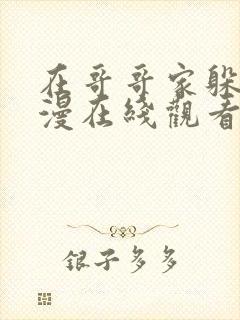 在哥哥家躲
漫在线觀看
银子多多